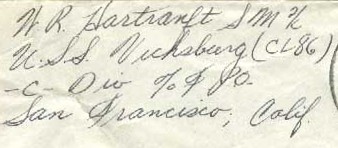 W. R. Hartranft S M 2/c
U.S.S. Vicksburg (CL86)
-C- Div % F PO-
San Francisco, Calif.